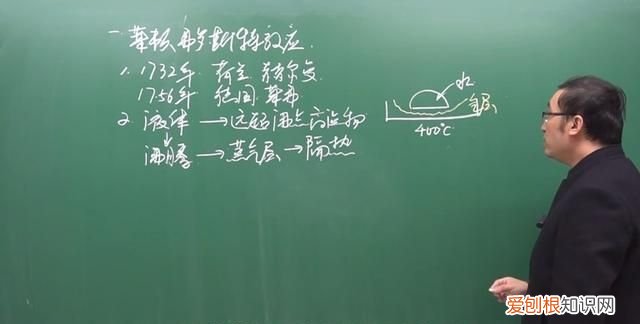 一. 莱顿弗罗斯特效应.
1. 1732年 荷兰 赫尔曼
1756年 德国 莱顿
2. 液体 → 远超沸点高温物
↓
沸腾 → 蒸气层 → 隔热
水
气层
400℃
爱刨根知识网